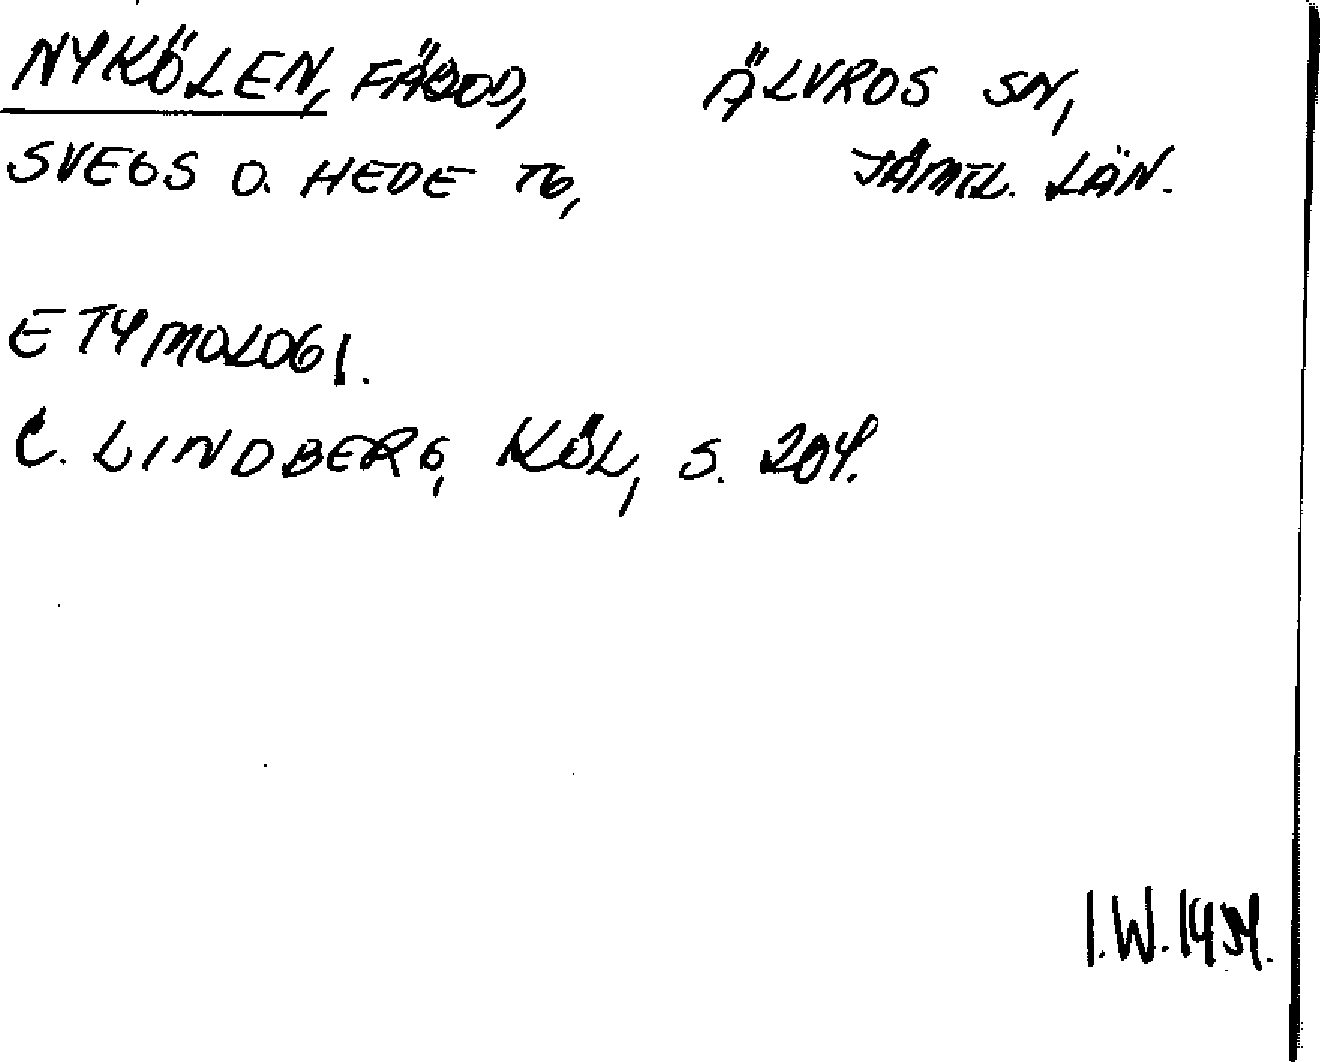 NYKÖLEN, FÄBOD, ÄLVROS SN,
SVEGS O. HEDE TG, JÄMTL. LÄN.
ETYMOLOGI.
C. LINDBERG, KÖL, S. 204.
I.W.